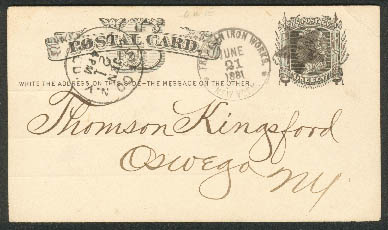 POSTAL CARD
IRON WORKS,
JUNE
21
1881
NEW YORK
WRITE THE ADDRESS ON THIS SIDE – THE MESSAGE ON THE OTHER
Thomson Kingsford
Oswego NY